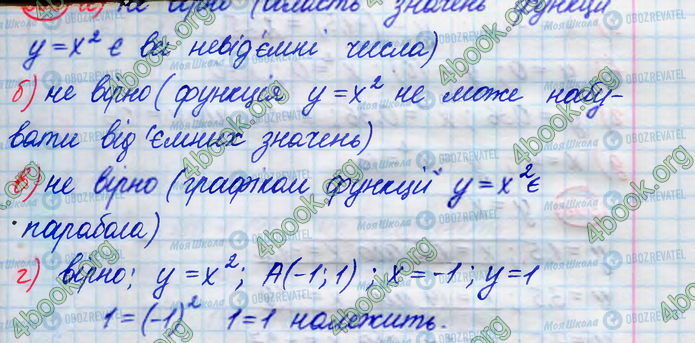 а) не вірно (область значень функції
y = x² є всі невід'ємні числа)
б) не вірно (функція y = x² не може набу-
вати від'ємних значень)
в) не вірно (графіком функції y = x² є
парабола)
г) вірно; y = x²; A(-1; 1); x = -1; y = 1
1 = (-1)² 1 = 1 належить.